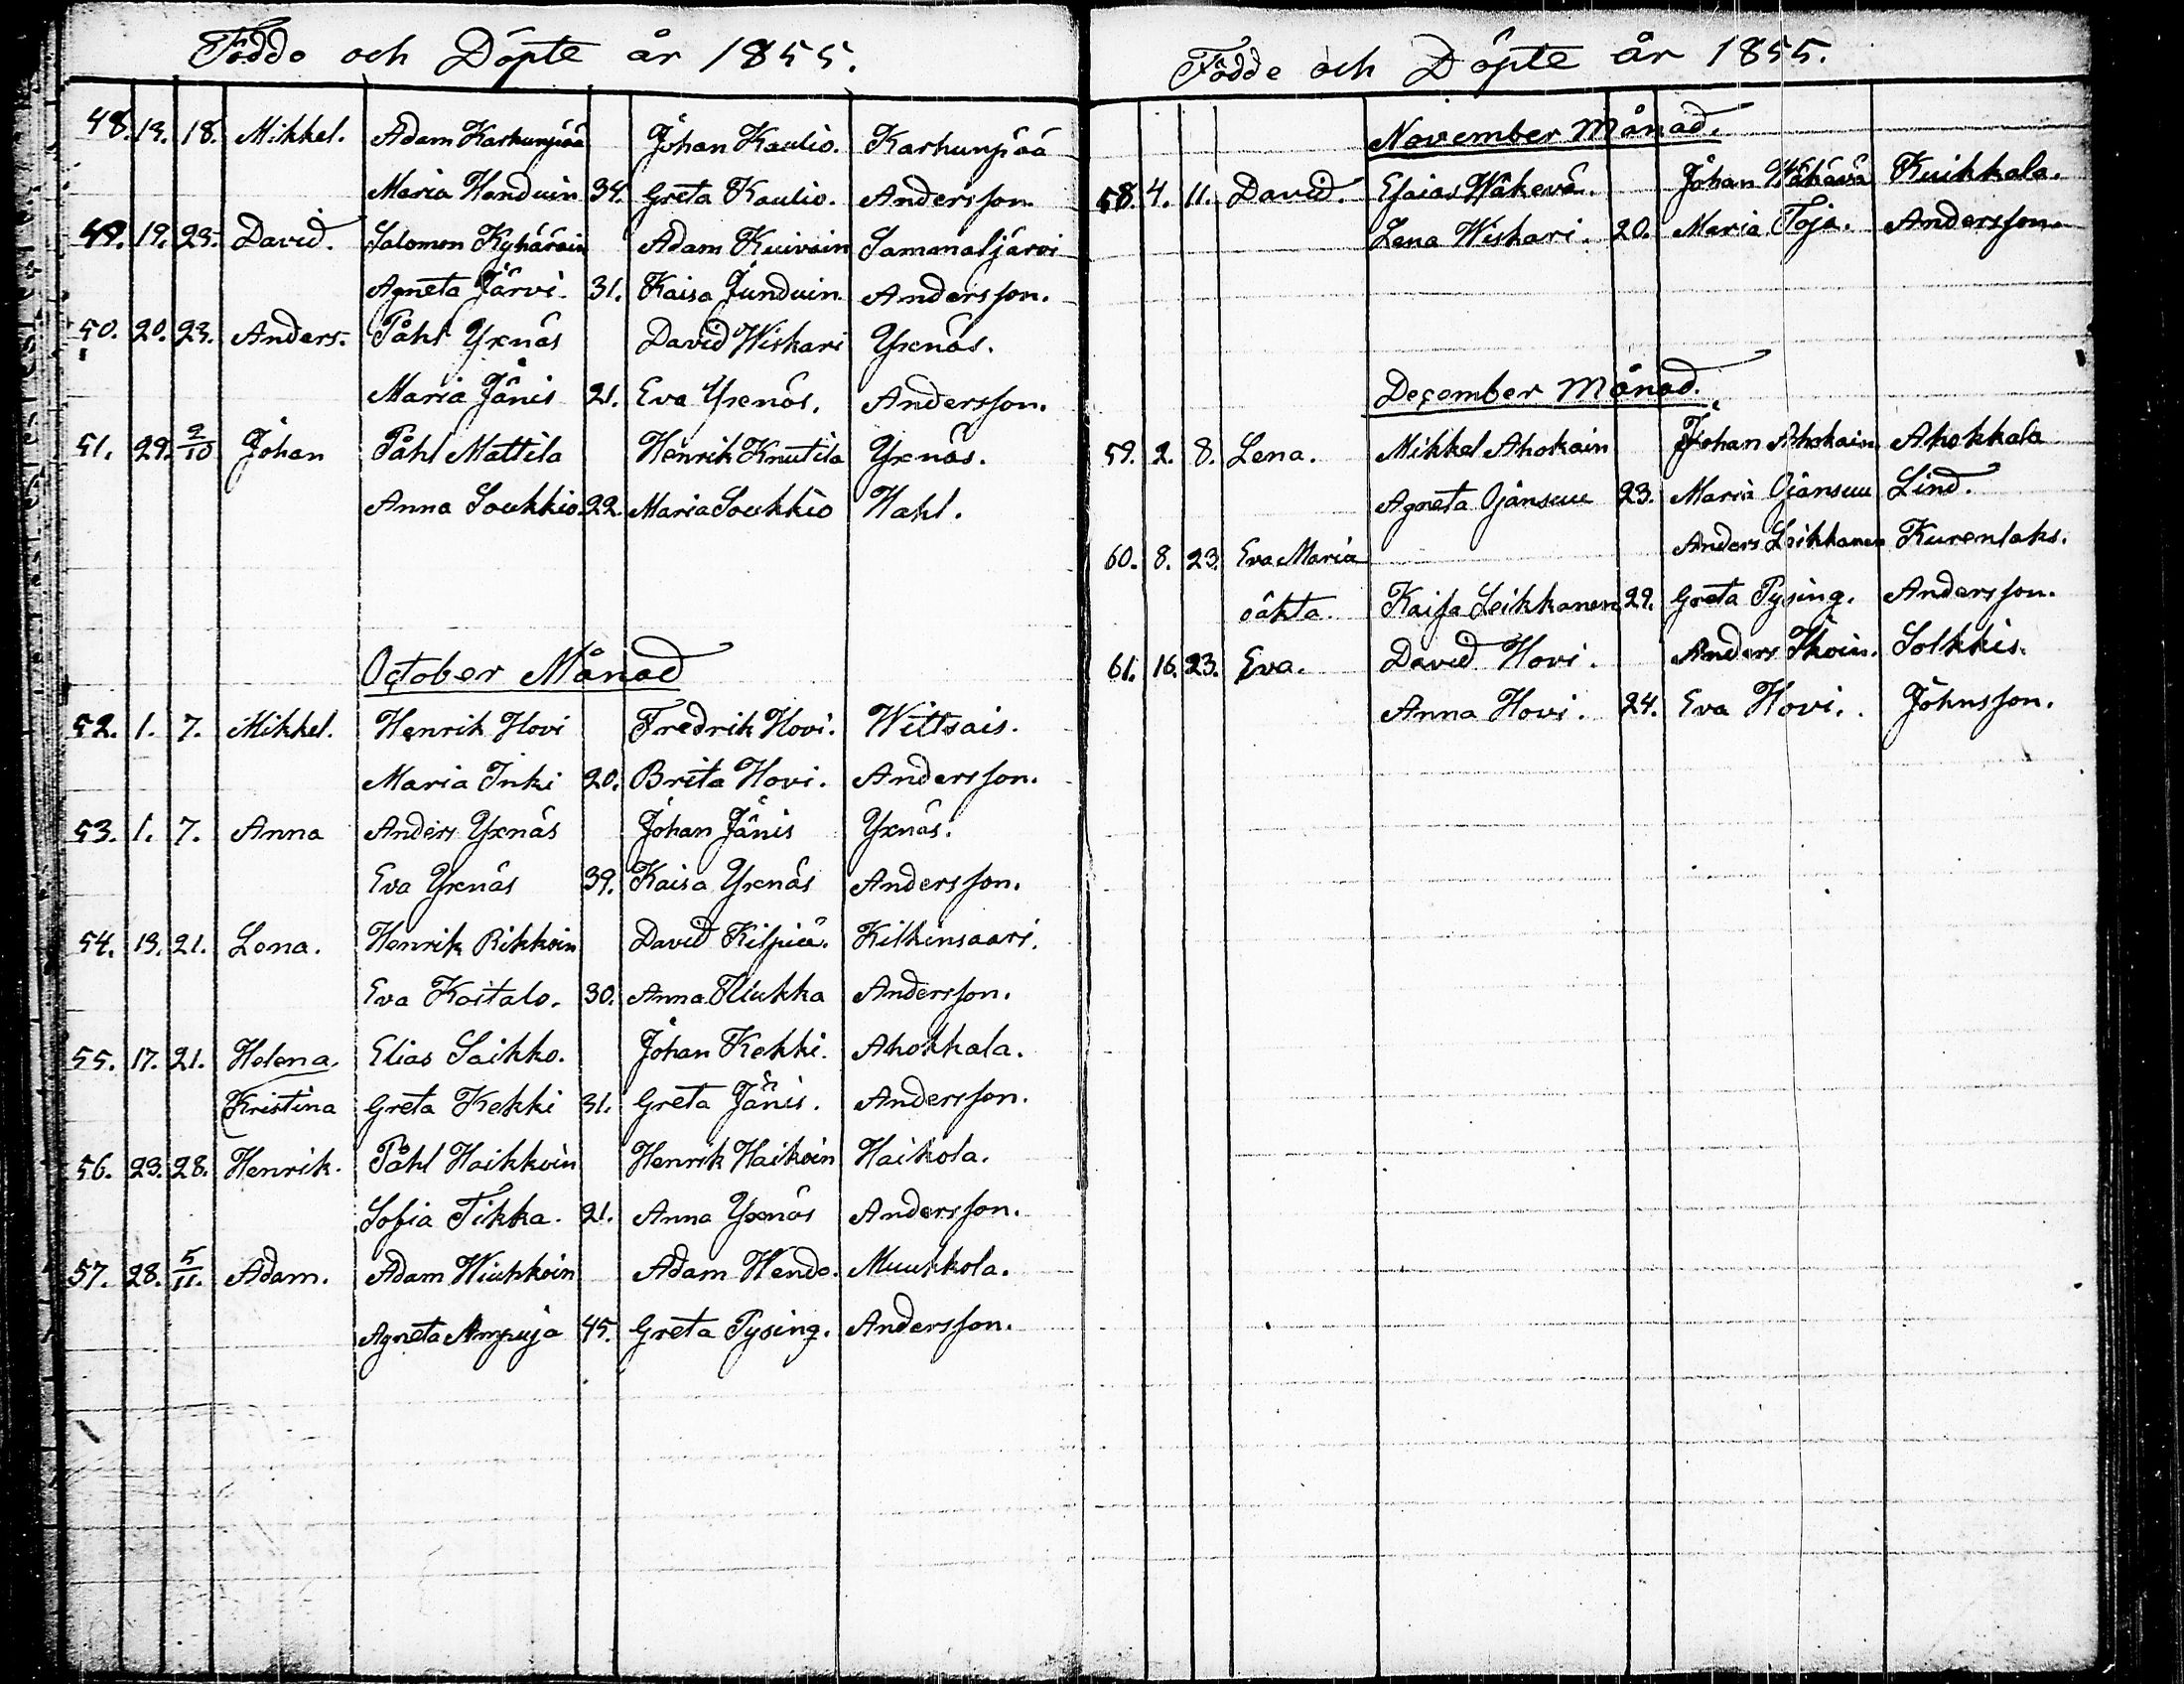 Födde och Döpte år 1855.
48. 13. 18. Mikkel. Adam Karhunpää Johan Kaulio. Karhunpää
Maria Handuin 34. Greta Kaulio. Andersson.
49. 19. 23. David. Salomon Kyhäräin Adam Kuivain Samanaljärvi
Agneta Järvi. 31. Kaisa Junduin Andersson.
50. 20. 23. Anders. Påhl Yxnäs David Wiskari Yxnäs.
Maria Jänis 21. Eva Yxnäs. Andersson.
51. 29. 2/10 Johan Påhl Mattila Henrik Knutila Yxnäs.
Anna Soukkio. 22. Maria Soukkio Wahl.
October Månad
52. 1. 7. Mikkel. Henrik Hovi Fredrik Hovi. Wittsais.
Maria Inki 20. Brita Hovi. Andersson.
53. 1. 7. Anna Anders Yxnäs Johan Jänis Yxnäs.
Eva Yxnäs 39. Kaisa Yxnäs Andersson.
54. 13. 21. Lena. Henrik Rikkoin David Kilpiä. Kilkinsaari.
Eva Koitalo. 30. Anna Andersson.
55. 17. 21. Helena. Elias Saikko. Johan Kekki. Ahokkala.
Kristina Greta Kekki 31. Greta Jänis. Andersson.
56. 23. 28. Henrik. Påhl Haikkoin Henrik Haikoin Haikola.
Sofia Tikka. 21. Anna Yxnäs Andersson.
57. 28. 5/11. Adam. Adam Wiukkoin Adam Hendo. Muukkola.
Agneta Ampuja 45. Greta Pysing. Andersson.
Födde och Döpte år 1855.
November Månad.
58. 4. 11. David. Esaias Wäkevä. Johan Wäkävä Kuikkala.
Lena Wiskari. 20. Maria Toja. Andersson.
December Månad.
59. 2. 8. Lena. Mikkel Ahokain Johan Ahokain Ahokkala
Agneta Ojansuu 23. Maria Ojansuu Lind.
60. 8. 23. Eva Maria Anders Leikkanen Kurenlaks.
oäkta. Kaisa Leikkanen 29. Greta Pysing. Andersson.
61. 16. 23. Eva. David Hovi. Anders Ihoin. Solkkis.
Anna Hovi. 24. Eva Hovi. Johnsson.